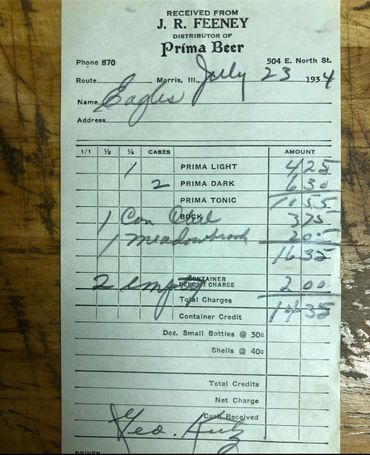 RECEIVED FROM
J. R. FEENEY
DISTRIBUTOR OF
Prima Beer
Phone 870 504 E. North St.
Route Morris, Ill., July 23 1934
Name Eagles
Address
1/1 ½ ¼ CASES AMOUNT
1 PRIMA LIGHT 4 25
2 PRIMA DARK 6 30
PRIMA TONIC 10 55
1 Can BOCK 3 75
1 Meadowbrook 2 05
16 35
2 empty CONTAINER DEPOSIT CHARGE 2 00
Total Charges 14 35
Container Credit
Doz. Small Bottles @ 30c
Shells @ 40c
Total Credits
Net Charge
Cash Received
Geo.
DRIVER